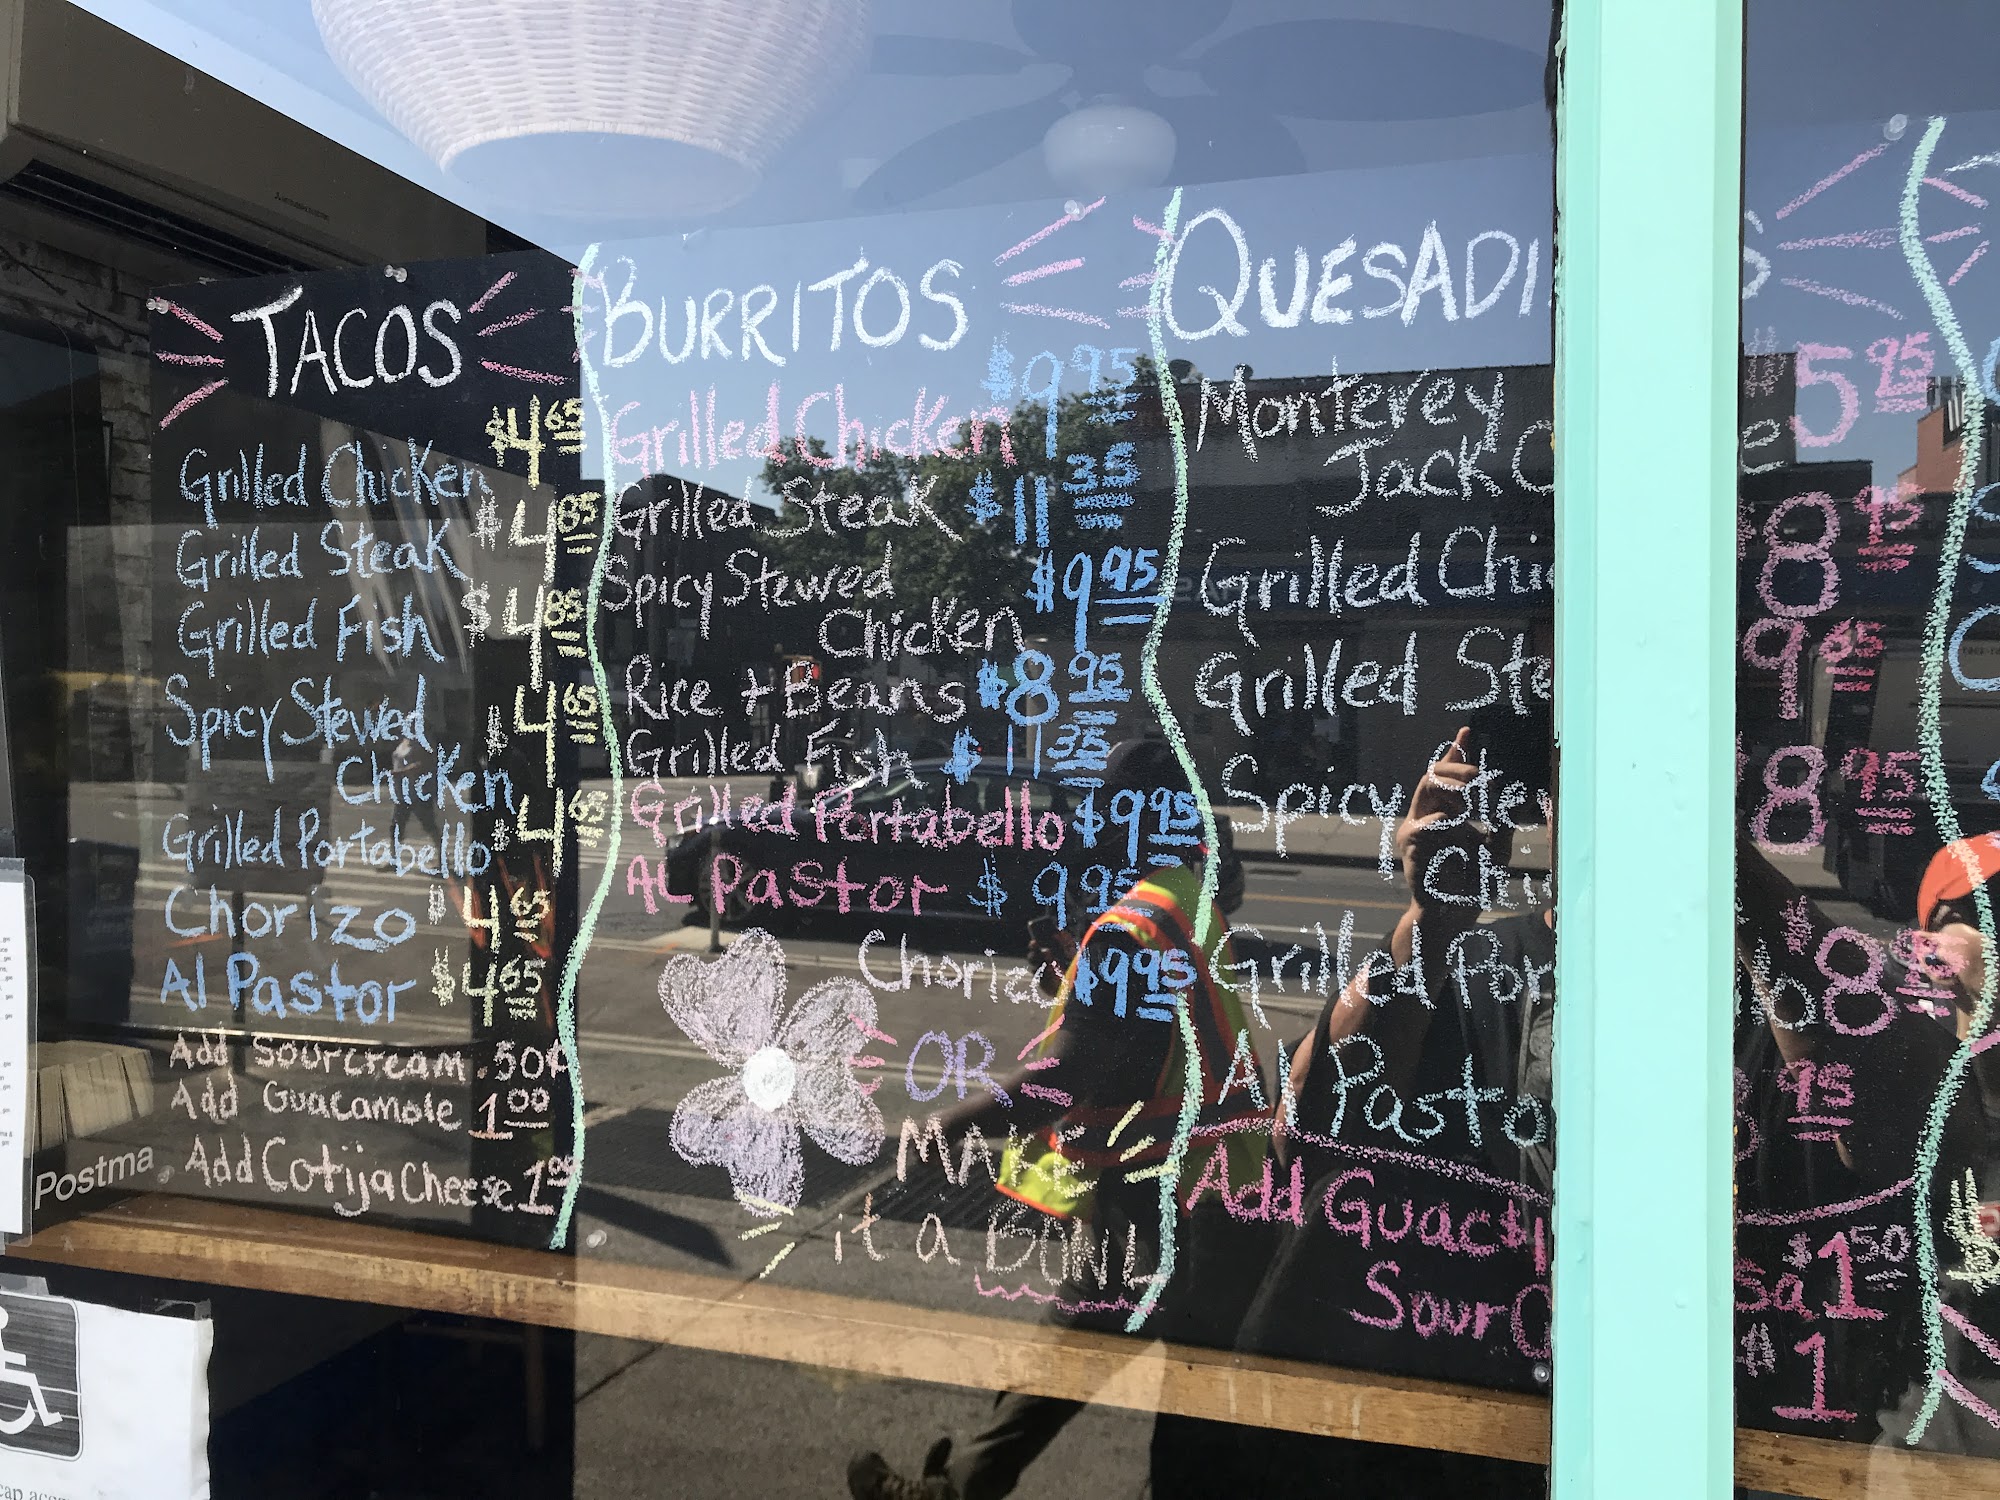 TACOS
$4.65
Grilled Chicken
Grilled Steak $4.85
Grilled Fish $4.85
Spicy Stewed
Chicken $4.65
Grilled Portabello $4.65
Chorizo $4.65
Al Pastor $4.65
Add Sourcream .50¢
Add Guacamole 1.00
Add Cotija Cheese 1.00
BURRITOS
Grilled Chicken $9.95
Grilled Steak $11.35
Spicy Stewed
Chicken $9.95
Rice + Beans $8.95
Grilled Fish $11.35
Grilled Portabello $9.95
AL Pastor $9.95
Chorizo $9.95
OR
MAKE
it a BOWL
QUESADI
Monterey
Jack C
Grilled Chic
Grilled Ste
Spicy Stew
Chi
Grilled Por
Al Pasto
Add Guac
Sour C
S
5.95
8.95
9.65
8.95
$8
.95
Sa $1.50
$1
Postma